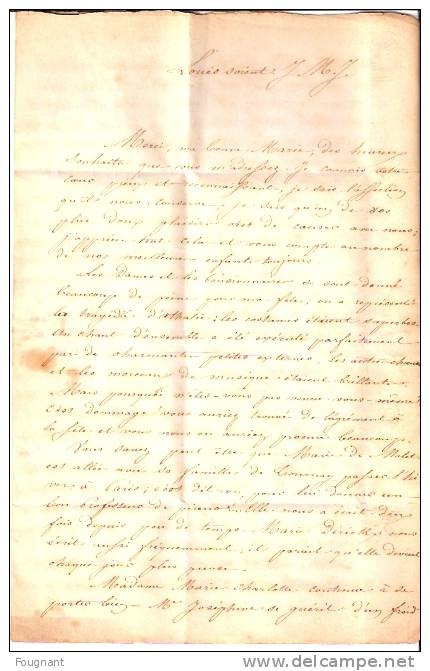 Loués soient J. M. J.
Merci, ma bonne Marie, des heureux
souhaits que vous m'adressez. Je connais votre
cœur pieux et reconnaissant, je sais l'affection
qu'il nous conserve; je sais qu'un de vos
plus doux plaisirs est de causer avec nous;
j'apprécie tout cela et vous compte au nombre
de nos meilleures enfants toujours.
Les Dames et les pensionnaires se sont donné
beaucoup de peine pour ma fête, on a représenté
la tragédie d'Athalie; les costumes étaient superbes.
Un chœur d'ensemble a été exécuté parfaitement
par de charmantes petites externes. Les autres chœurs
et les morceaux de musique étaient brillants.
Mais pourquoi n'êtes-vous pas venue vous-même?
C'est dommage! vous auriez trouvé de l'agrément à
la fête et vous nous en auriez procuré beaucoup.
Vous savez peut être que Marie de Malet
est allée avec sa famille de Tournay passer l'hi
ver à Paris; c'est dit-on, pour lui donner un
bon Professeur de piano. Elle nous a écrit deux
fois depuis peu de temps. Marie nous
écrit aussi fréquemment, il paraît qu'elle devient
chaque jour plus pieuse.
Madame Marie Charlotte continue à se
porter bien. Me Joséphine se guérit d'un froid
Fougnant
delcampe.net